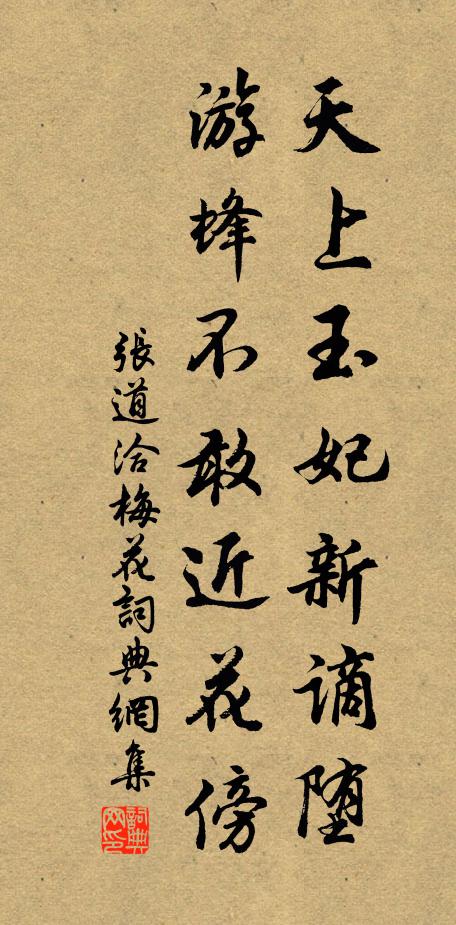 天上玉妃新谪堕
游蜂不敢近花傍
張道洽梅花詞典網集
詞典网印